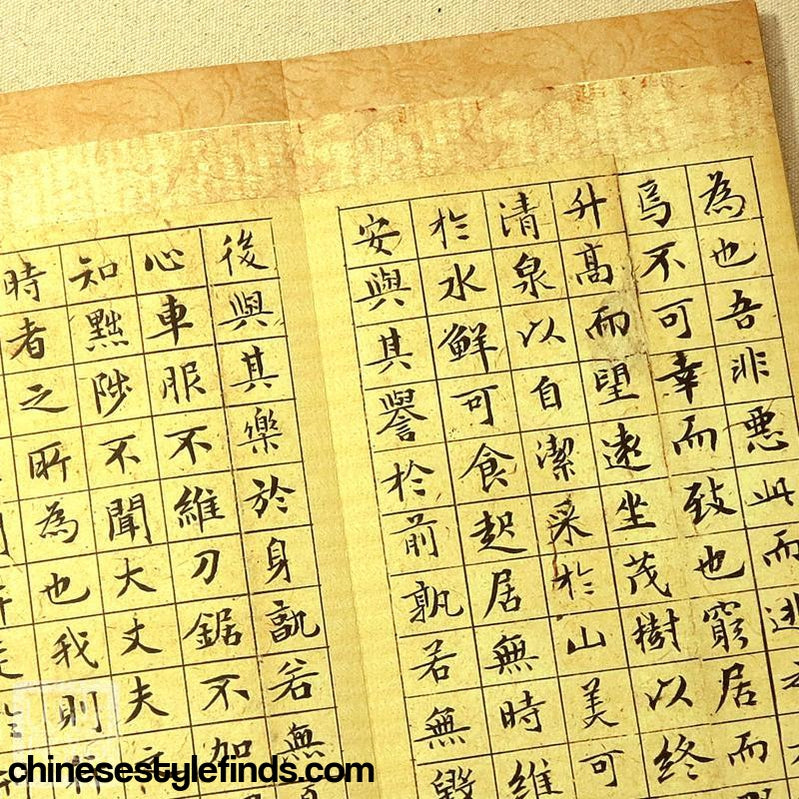 為也吾非悪此而逃
焉不可幸而致也窮居而
升高而望遠坐茂樹以終
清泉以自潔采於山美可
於水鮮可食起居無時維
安與其譽於前孰若無毀
後與其樂於身孰若無
心車服不維刀鋸不加
知黜陟不聞大丈夫
時者之所為也我則
chinesestylefinds.com